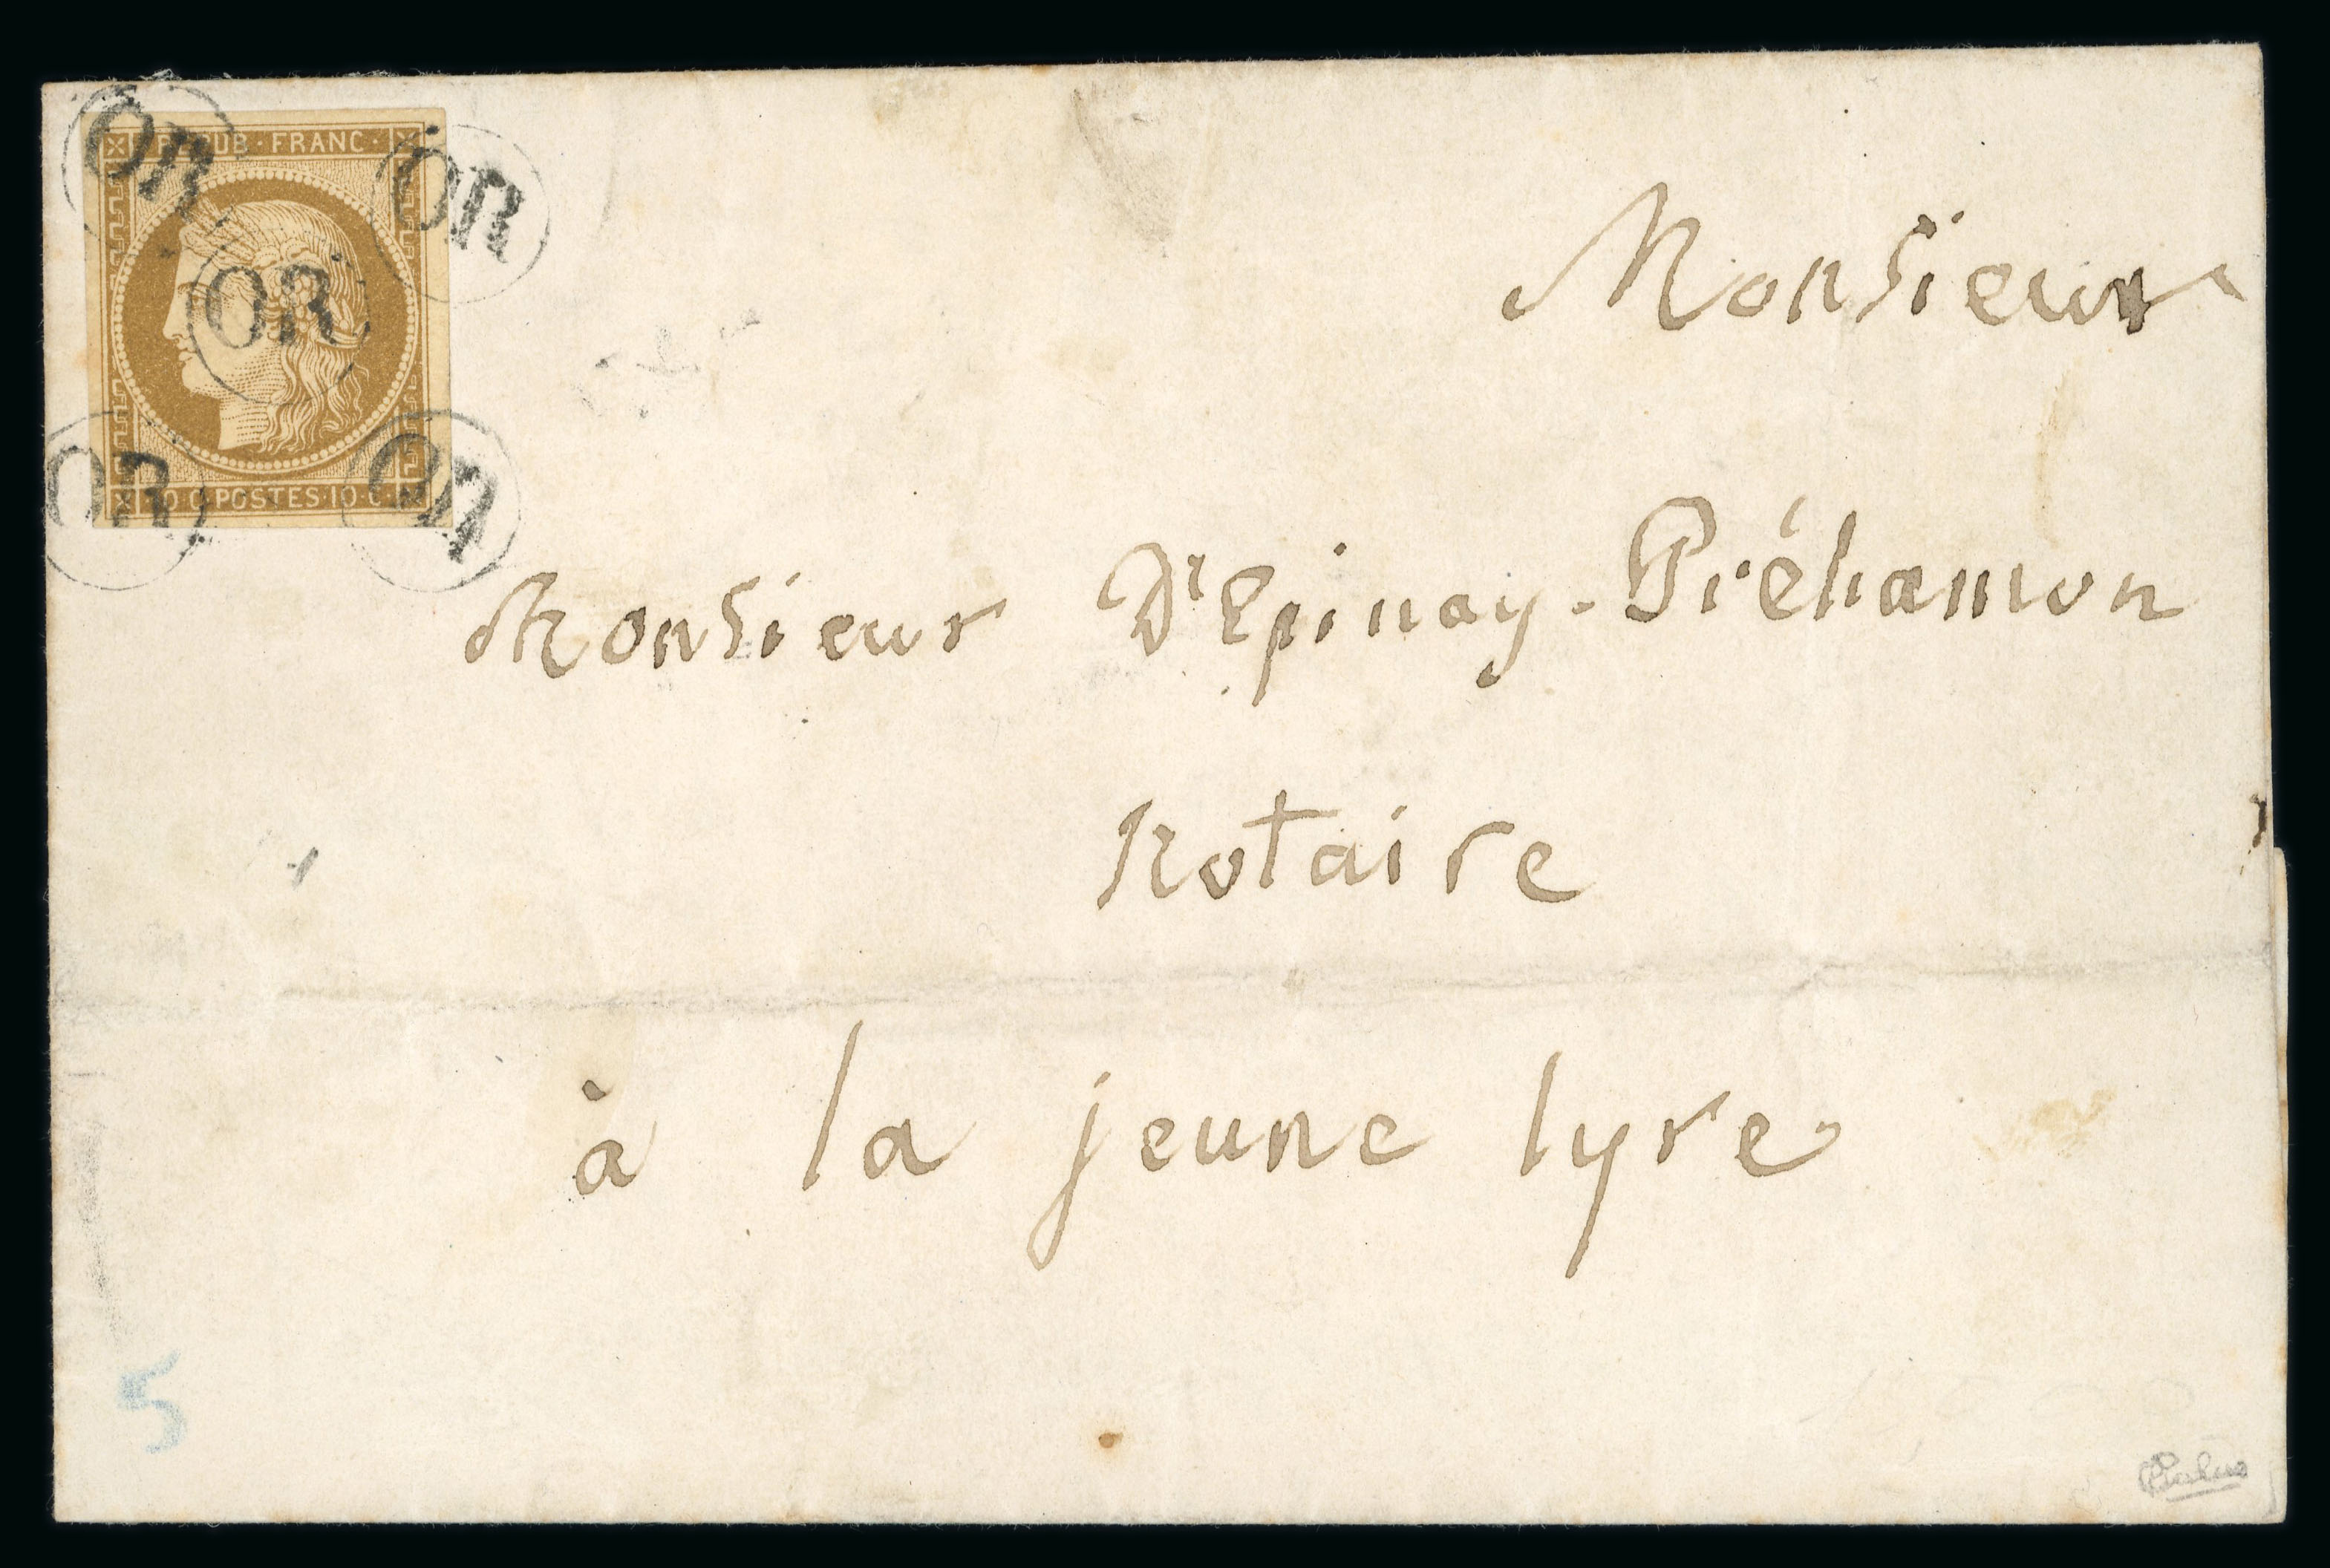 REPUB · FRANC ·
OR
OR
OR
OR
OR
10 · C · POSTES · 10 · C ·
Monsieur
Monsieur D'Epinay-Préhamon
Notaire
à la jeune lyre
5